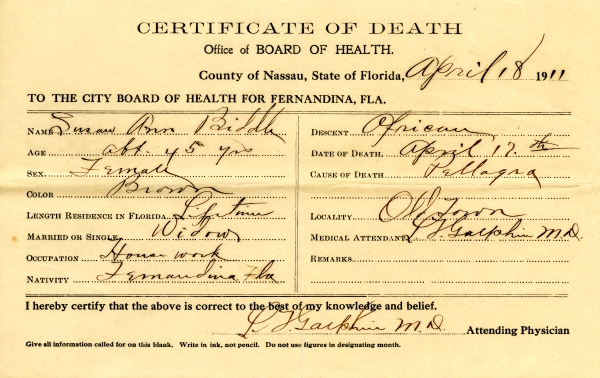 CERTIFICATE OF DEATH
Office of BOARD OF HEALTH.
County of Nassau, State of Florida, April 18 1911
TO THE CITY BOARD OF HEALTH FOR FERNANDINA, FLA.
NAME Susan Ann Biddle
AGE abt. 45 yrs
SEX. Female
COLOR Brown
LENGTH RESIDENCE IN FLORIDA. Lifetime
MARRIED OR SINGLE. Widow
OCCUPATION House work
NATIVITY Fernandina Fla
DESCENT. African
DATE OF DEATH. April 17th
CAUSE OF DEATH Pellagra
LOCALITY Old Town
MEDICAL ATTENDANT Galphin M.D.
REMARKS
I hereby certify that the above is correct to the best of my knowledge and belief.
Galphin M.D. Attending Physician
Give all information called for on this blank. Write in ink, not pencil. Do not use figures in designating month.